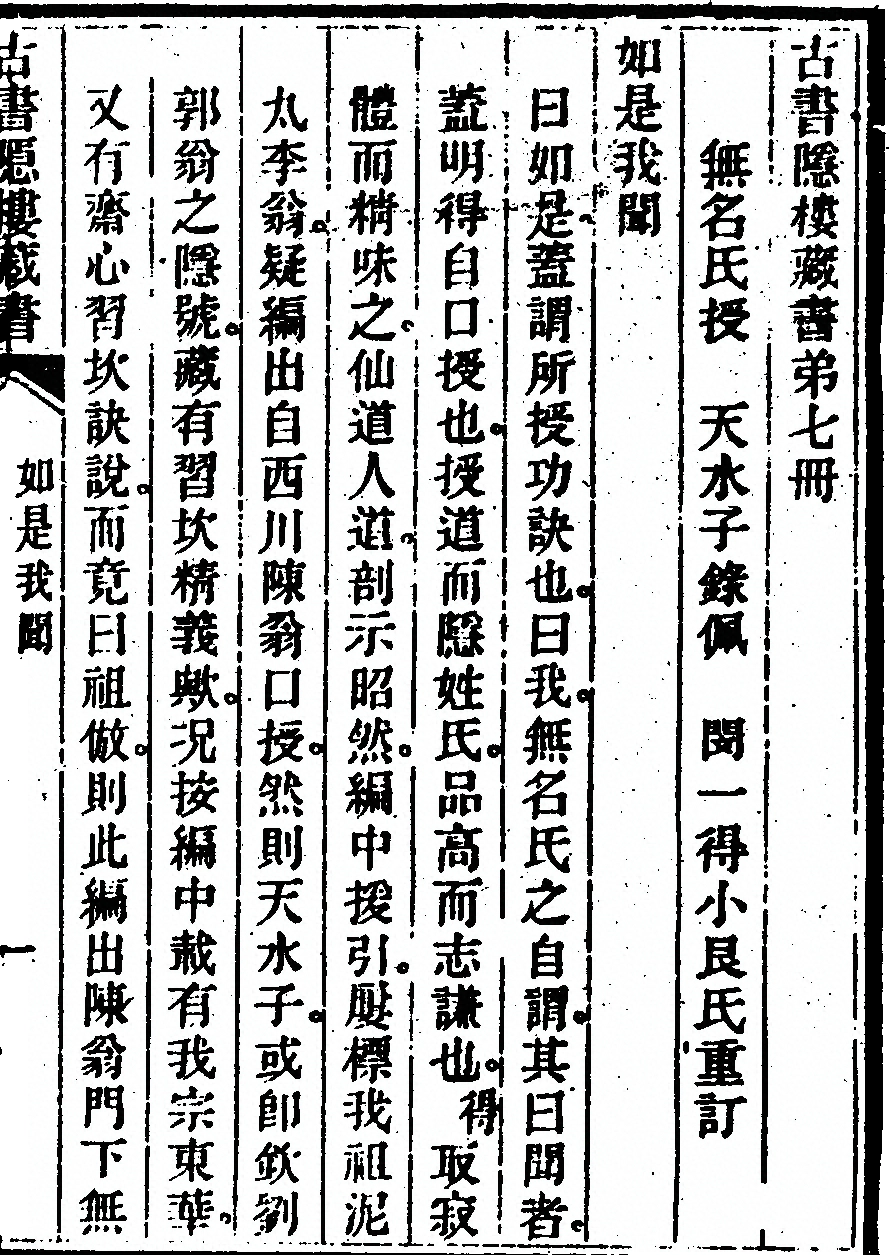 古書隱樓藏書弟七冊
無名氏授　天水子錄佩　閔一得小艮氏重訂
如是我聞
曰如是。蓋謂所授功訣也。曰我。無名氏之自謂。其曰聞者。
蓋明得自口授也。授道而隱姓氏。品高而志謙也。得取寂
體而精味之。仙道人道。剖示昭然。編中援引。屢標我祖泥
丸李翁。疑編出自西川陳翁口授。然則天水子。或卽欽劉
郭翁之隱號。藏有習坎精義歟。況按編中載有我宗東華。
又有齋心習坎訣說。而竟曰祖倣。則此編出陳翁門下無
古書隱樓藏書　如是我聞　一